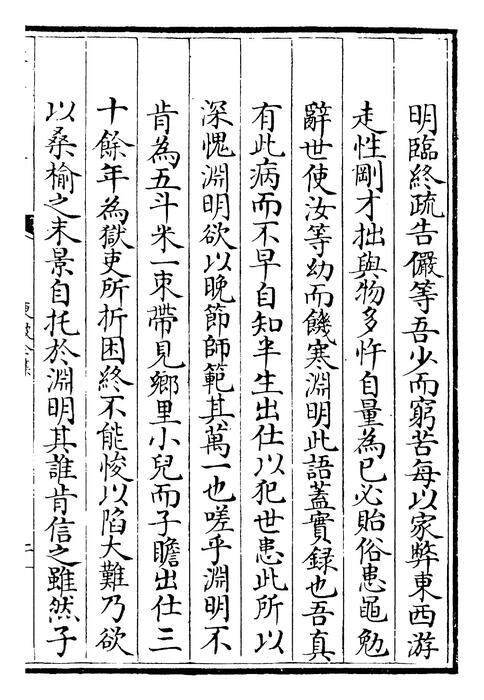 明臨終疏告儼等吾少而窮苦每以家弊東西游
走性剛才拙與物多忤自量為已必貽俗患黽勉
辭世使汝等幼而饑寒淵明此語蓋實録也吾真
有此病而不早自知半生出仕以犯世患此所以
深愧淵明欲以晚節師範其萬一也嗟乎淵明不
肯為五斗米一束帶見鄉里小兒而子瞻出仕三
十餘年為獄吏所折困終不能悛以陷大難乃欲
以桑榆之末景自托於淵明其誰肯信之雖然子